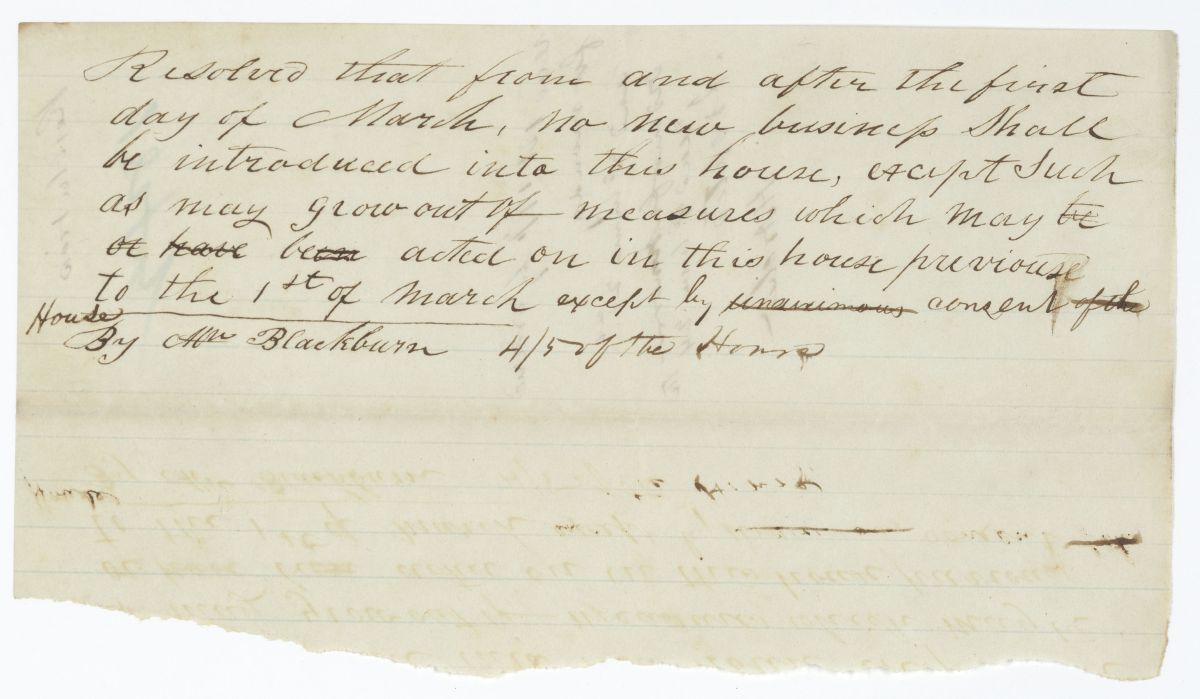 Resolved that from and after the first
day of March, no new business shall
be introduced into this house, except Such
as may grow out of measures which may be
or have been acted on in this house previous
to the 1st of March except by unanimous consent of the
House
By Mr Blackburn 4/5 of the House